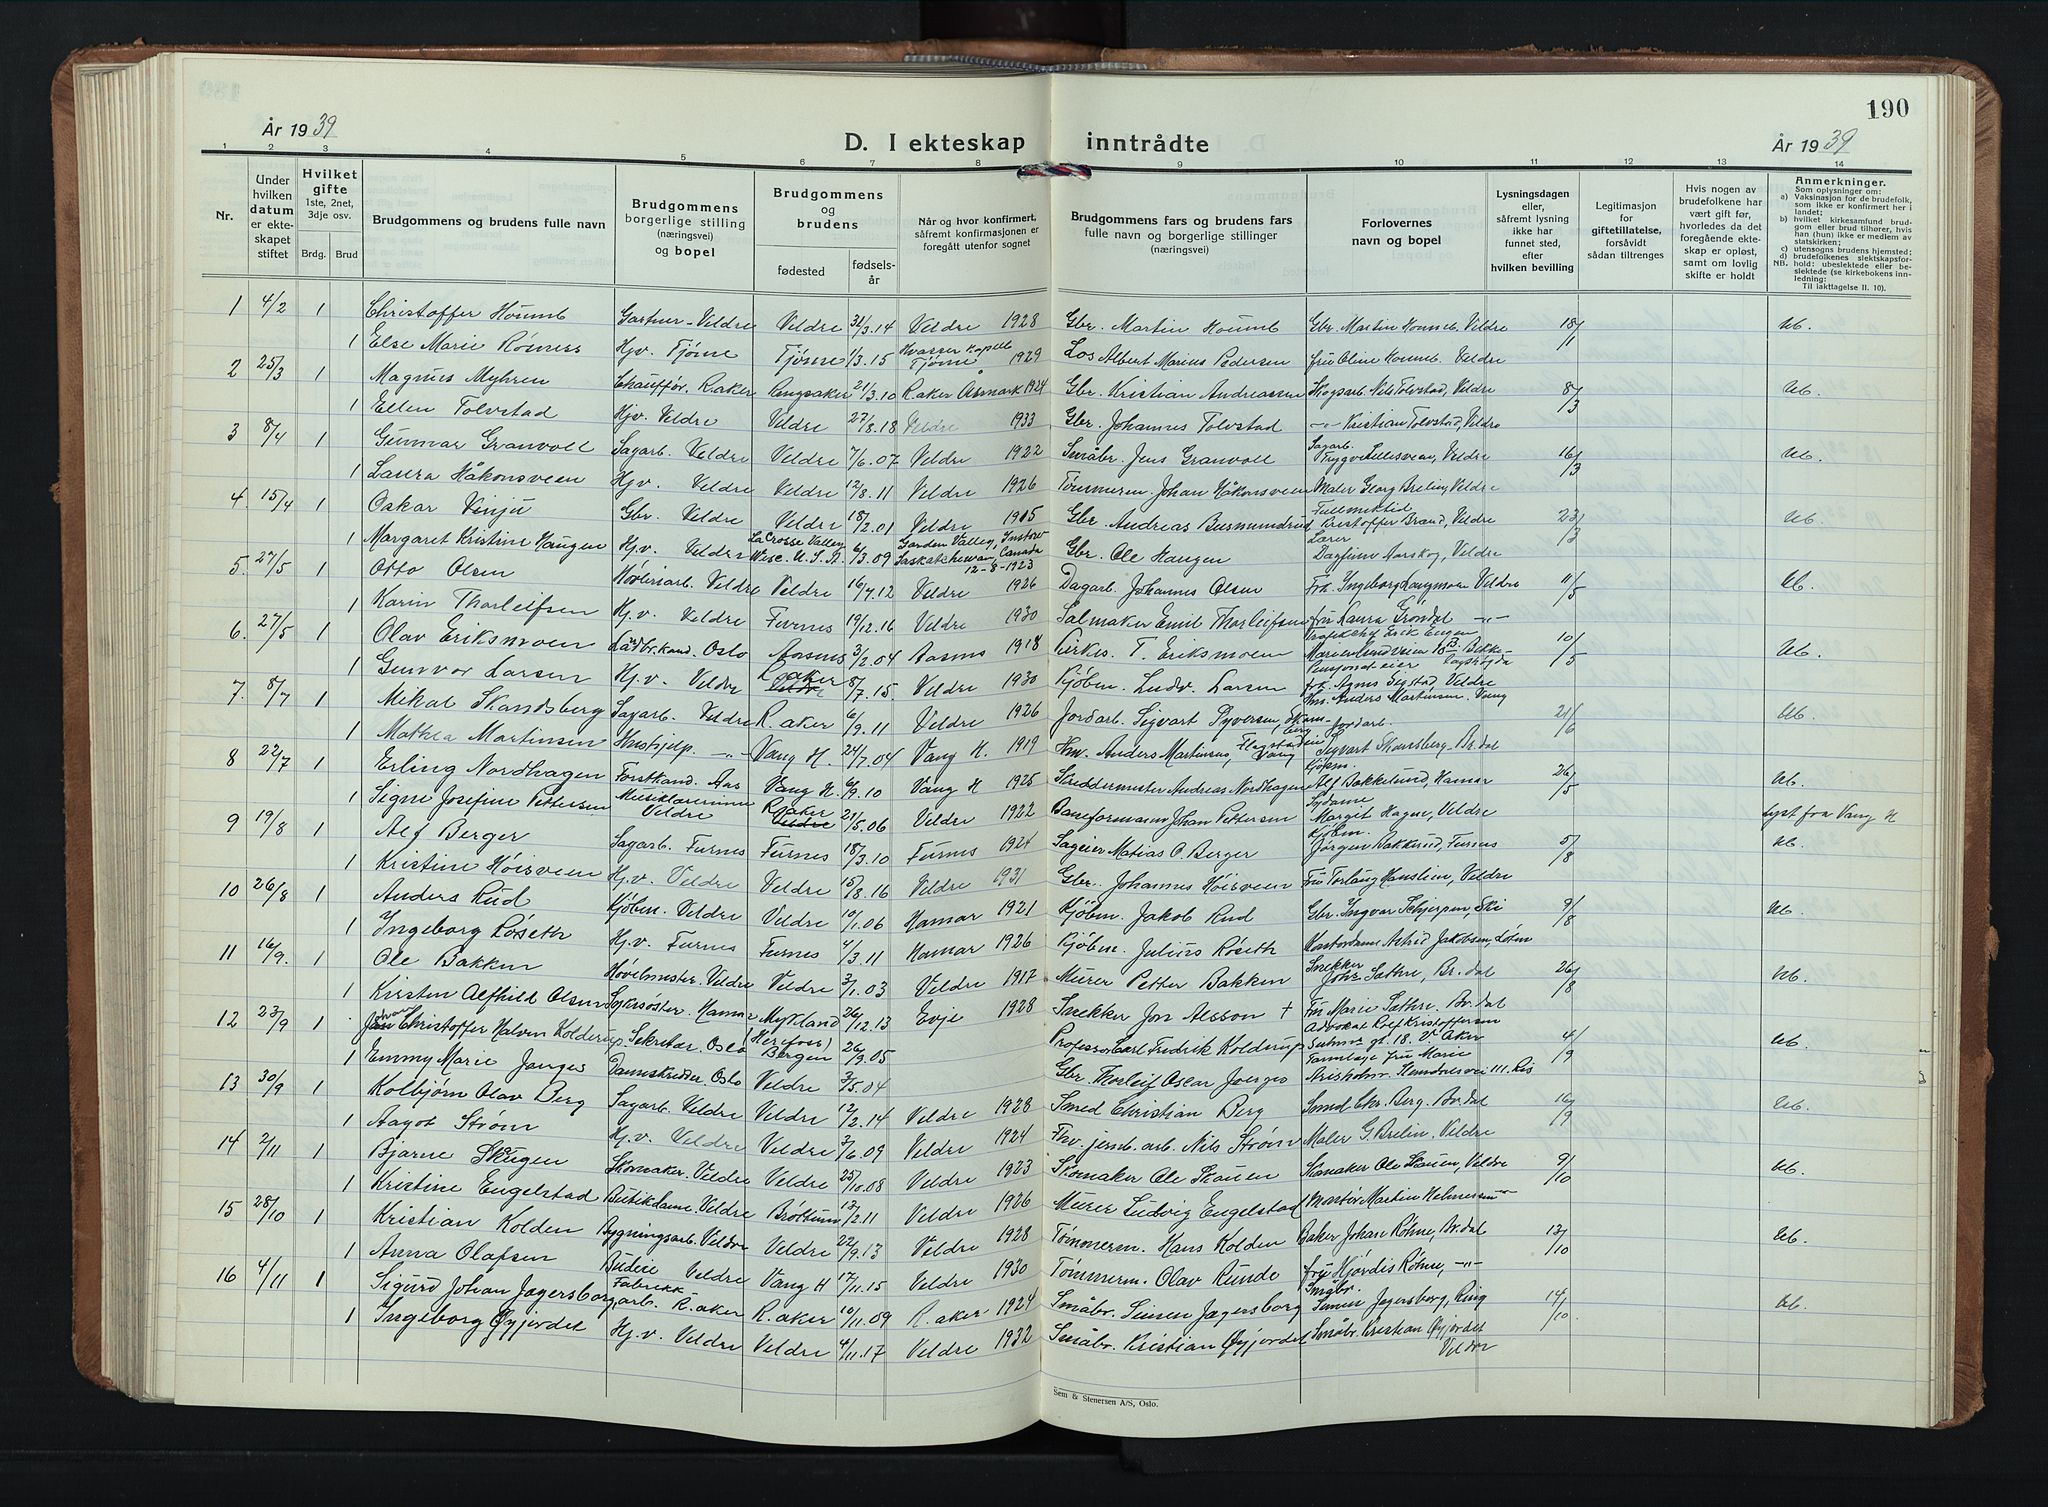 190
År 1939
D. I ekteskap inntrådte
År 1939
1 2 3 4 5 6 7 8 9 10 11 12 13 14
Nr.
Under hvilken datum er ekteskapet stiftet
Hvilket gifte 1ste, 2net, 3dje osv.
Brdg. Brud
Brudgommens og brudens fulle navn
Brudgommens borgerlige stilling (næringsvei) og bopel
Brudgommens og brudens
fødested
fødselsår
Når og hvor konfirmert, såfremt konfirmasjonen er foregått utenfor sognet
Brudgommens fars og brudens fars fulle navn og borgerlige stillinger (næringsvei)
Forlovernes navn og bopel
Lysningsdagen eller, såfremt lysning ikke har funnet sted, efter hvilken bevilling
Legitimasjon for giftetillatelse, forsåvidt sådan tiltrenges
Hvis nogen av brudefolkene har vært gift før, hvorledes da det foregående ekteskap er opløst, samt om lovlig skifte er holdt
Anmerkninger.
Som oplysninger om:
a) Vaksinasjon for de brudefolk, som ikke er konfirmert her i landet;
b) hvilket kirkesamfund brudgom eller brud tilhører, hvis han (hun) ikke er medlem av statskirken;
c) utensogns brudens hjemsted;
d) brudefolkenes slektskapsforhold: ubeslektede eller beslektede (se kirkebokens innledning:
NB.
Til iakttagelse II. 10).
1 4/2 1 Christoffer Houmb Gartner - Veldre Veldre 31/3.14 Veldre 1928 Gbr. Martin Houmb Gbr. Martin Houmb, Veldre 18/1 Ub.
1 Else Marie Rösness Hj.v. Tjöme Tjöme 1/3.15 Hvasser Kapell Tjöme 1929 Los Albert Marius Pedersen fru Oline Houmb, Veldre
2 25/3 1 Magnus Myhren Chauffør. R.aker Ringsaker 21/3.10 R.aker Åsmark 1924 Gbr. Kristian Andreassen Skogsarb. Nils Tolvstad, Veldre 8/3 Ub.
1 Ellen Tolvstad Hjv. Veldre Veldre 27/8.18 Veldre 1933 Gbr. Johannes Tolvstad -"- Kristian Tolvstad, Veldre
3 8/4 1 Gunnar Granvoll Sagarb. Veldre Veldre 7/6.07 Veldre 1922 Småbr. Jens Granvoll Sagarb. Trygve Lillesveen, Veldre 16/3 Ub.
1 Laura Håkonsveen Hj.v. Veldre Veldre 12/8.11 Veldre 1926 Tömmerm. Johan Håkonsveen Maler Georg Brelin, Veldre
4. 15/4 1 Oskar Vinju Gbr. Veldre Veldre 18/2.01 Veldre 1915 Gbr. Andreas Busmundrud Fullmektig Kristoffer Brand, Veldre 23/3 Ub.
1 Margaret Kristine Haugen Hj.v. Veldre La Crosse Valley, Wisc. U.S.A. 6/3.09 Garden Valley, Saskatchewan, Canada 12-8-1923 Gbr. Ole Haugen Lærer Dagfinn Narskog, Veldre
5. 27/5 1 Otto Olsen Høvleriarb. Veldre Veldre 16/7.12 Veldre 1926 Dagarb. Johannes Olsen Frk. Ingeborg Langmoen Veldre 11/5 Ub.
1 Karin Thorleifsen Hj.v. Veldre Furnes 19/12.16 Veldre 1930 Salmaker Emil Thorleifsen fru Laura Gröndal -"-
6. 27/5 1 Olav Eriksmoen Landbr.kand. Oslo 3/2.04 1918 T. Eriksmoen Erik Engen 10/5 Ub.
1 Gunvor Larsen Hj.v. Veldre R.aker 8/7.15 Veldre 1930 Kjöbm. Ludv. Larsen Pensjonateier frk. Agnes Segstad, Veldre
7. 8/7 1 Mikal Skandsberg Sagarb. Veldre R.aker 6/9.11 Veldre 1926 Jordarb. Sigvart Syversen, Hm. Anders Martinsen. Vang 21/6 Ub.
1 Mathea Martinsen Hushjelp -"- Vang H. 24/7.04 Vang H. 1919 Hm. Anders Martinsen, Vang Jordarb. Sigvart Skansberg. Br.dal
8 22/7 1 Erling Nordhagen Forstkand. Aas Vang H. 6/9.10 Vang H 1925 Skreddermester Andreas Nordhagen Kjøbm. Alf Bakkelund, Hamar 26/5 Ub.
1 Signe Josefine Pettersen Musiklærerinne Veldre R.aker 21/5.06 Veldre 1922 Baneformann Johan Pettersen Sydame Margit Hagne, Veldre lyst fra Vang H
9 19/8 1 Alf Berger Sagarb. Furnes Furnes 18/3.10 Furnes 1924 Sageier Matias O. Berger Kjøbm. Jörgen Bakkerud, Furnes 5/8 Ub.
1 Kristine Höisveen Hj.v. Veldre Veldre 15/8.16 Veldre 1931 Gbr. Johannes Höisveen Fru Torlaug Hanslien, Veldre
10 26/8 1 Anders Rud Kjöbm. Veldre Veldre 10/1.06 Hamar 1921 Kjöbm. Jakob Rud Gbr. Ingvar Schjerpen, Ski 9/8 Ub.
1 Ingeborg Röseth Hj.v. Furnes Furnes 4/3.11 Hamar 1926 Kjöbm. Julius Röseth Kontordame Astrid Jakobsen, Löten
11 16/9. 1 Ole Bakken Høvelmester. Veldre Veldre 3/1.03 Veldre 1917 Murer Petter Bakken Snekker Johs. Sathre, Br.dal 26/8 Ub.
1 Kirsten Alfhild Olsen Sykesøster. Hamar Mykland (Herefoss) 26/12.13 Evje 1928 Snekker Jon Alsson + Fru Marie Sathre. Br.dal
12 23/9 1 Johan Christoffer Halven Kolderup Sekretær. Oslo Bergen 26/9.05 Professor Carl Fredrik Kolderup Advokat Rolf Kristoffersen 18. V. Aker 4/9 Ub.
1 Emmy Marie Jonges Dameskredder. Oslo Veldre 3/5.04 Gbr. Thorleif Oscar Joerges Tannlæge fru Marie
13 30/9 1 Kolbjörn Olav Berg Sagarb. Veldre Veldre 12/2.14 Veldre 1928 Smed Christian Berg Smed Chr. Berg. Br.dal 16/9 Ub.
1 Aagot Ström Hj.v. Veldre Veldre 3/6.09 Veldre 1924 Fhv. jernb.arb. Nils Ström Maler G. Brelin. Veldre
14 2/11 1 Bjarne Skugen Skomaker. Veldre Veldre 25/10.08 Veldre 1923 Skomaker Ole Skauen Skomaker Ole Skauen, Veldre 9/10 Ub.
1 Kristine Engelstad Butikdame. Veldre Bröttum 13/2.11 Veldre 1926 Murer Ludvig Engelstad Martin Helmersen -"-
15 28/10 1 Kristian Kolden Bygningsarb. Veldre Veldre 22/9.13 Veldre 1928 Tömmerm. Hans Kolden Baker Johan Röhne, Br.dal 13/10 Ub.
1 Anna Olafsen Budeie Veldre Vang H 17/11.15 Veldre 1930 Tömmerm. Olav Runde fru Hjördis Röhne, -"-
16 4/11 1 Sigurd Johan Jagersborg Fabrikkarb. R.aker R.aker 10/11.09 R.aker 1924 Småbr. Simen Jagersborg Småbr. Simen Jagersborg, Ring 14/10. Ub.
1 Ingeborg Øyjordet Hj.v. Veldre Veldre 4/11.17 Veldre 1932 Småbr. Kristian Øyjordet Småbr. Kristian Øyjordet Veldre
Sem & Stenersen A/S, Oslo.